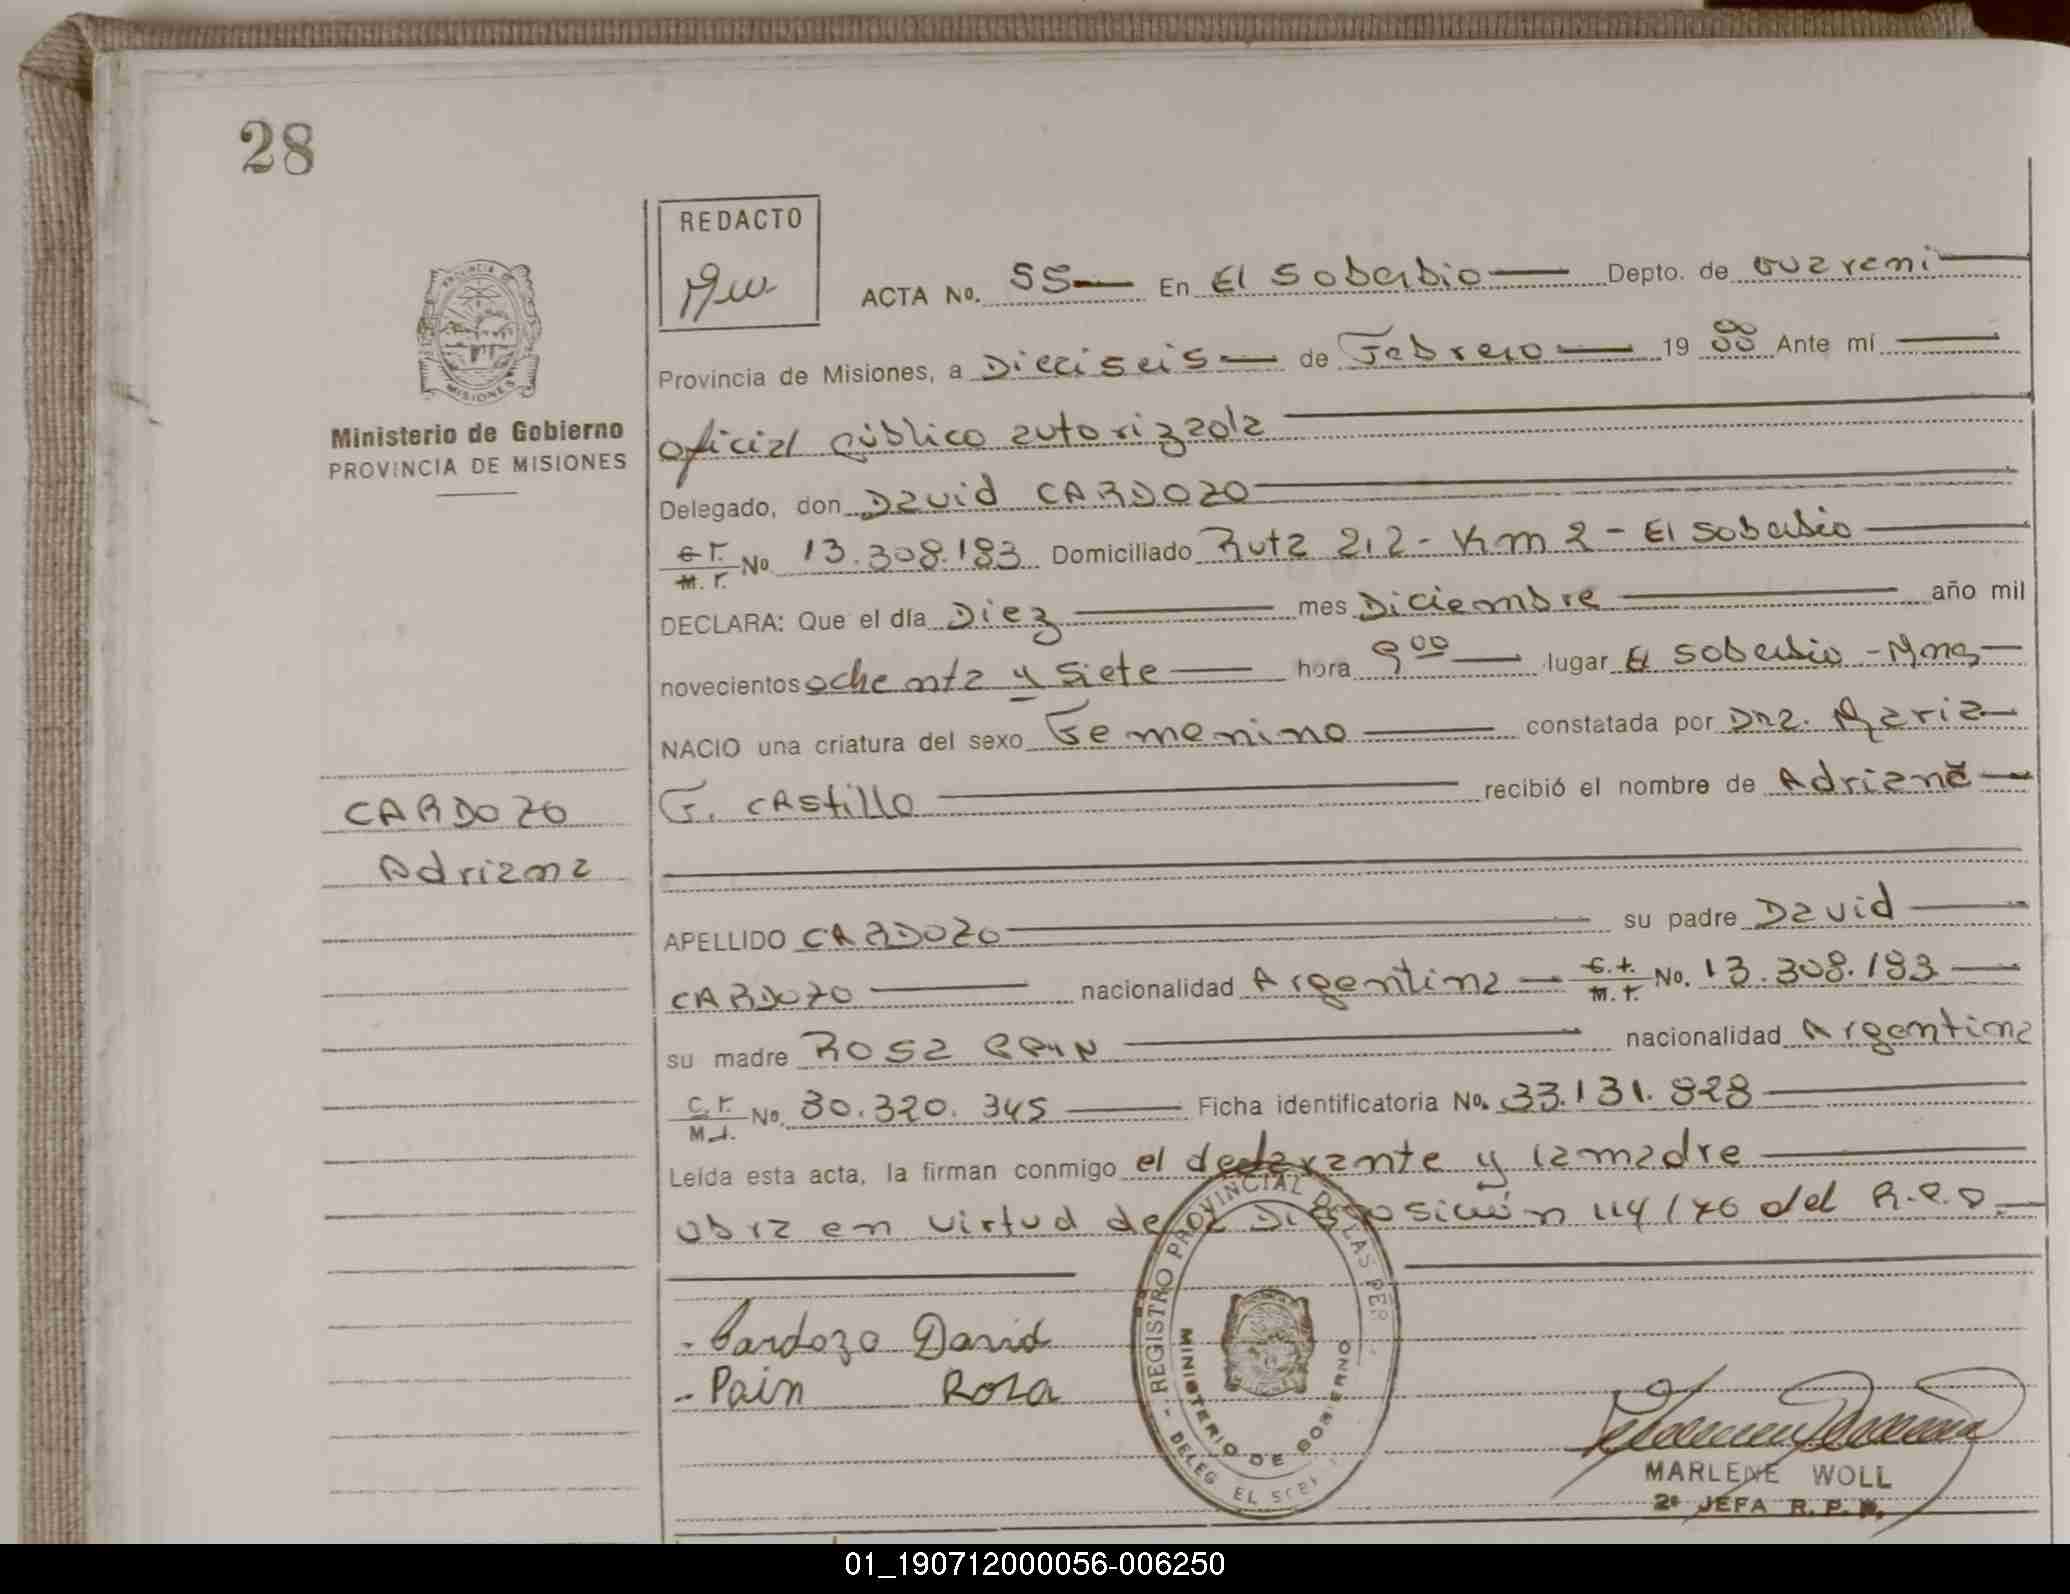 28
REDACTO
ACTA No. 55 En El Soberbio Depto. de Guarani
Provincia de Misiones, a Dieciseis de Febrero 19 88 Ante mí
Ministerio de Gobierno
PROVINCIA DE MISIONES
oficial público autorizada
Delegado, don David CARDOZO
No. 13.308.183 Domiciliado Ruta 212 - Km 2 - El Soberbio
DECLARA: Que el día Diez mes Diciembre año mil
novecientos ochenta y siete hora 9 00 lugar El Soberbio - Mnes
NACIO una criatura del sexo Femenino constatada por Dra. Maria
G. CAstillo recibió el nombre de Adriana
CARDOZO
Adriana
APELLIDO CARDOZO su padre David
CARDOZO nacionalidad Argentina No. 13.308.183
su madre Rosa PAIN nacionalidad Argentina
C.I. M.I. No. 30.320.345 Ficha identificatoria No. 33.131.828
Leída esta acta, la firman conmigo el declarante y la madre
obra en virtud de la Disposición 114/76 del R.P.P.
- Cardozo David
- Pain Rosa
REGISTRO PROVINCIAL DE LAS PER.
MINISTERIO DE GOBIERNO
DELEG EL
MARLENE WOLL
2ª JEFA R. P. P.
01_190712000056-006250